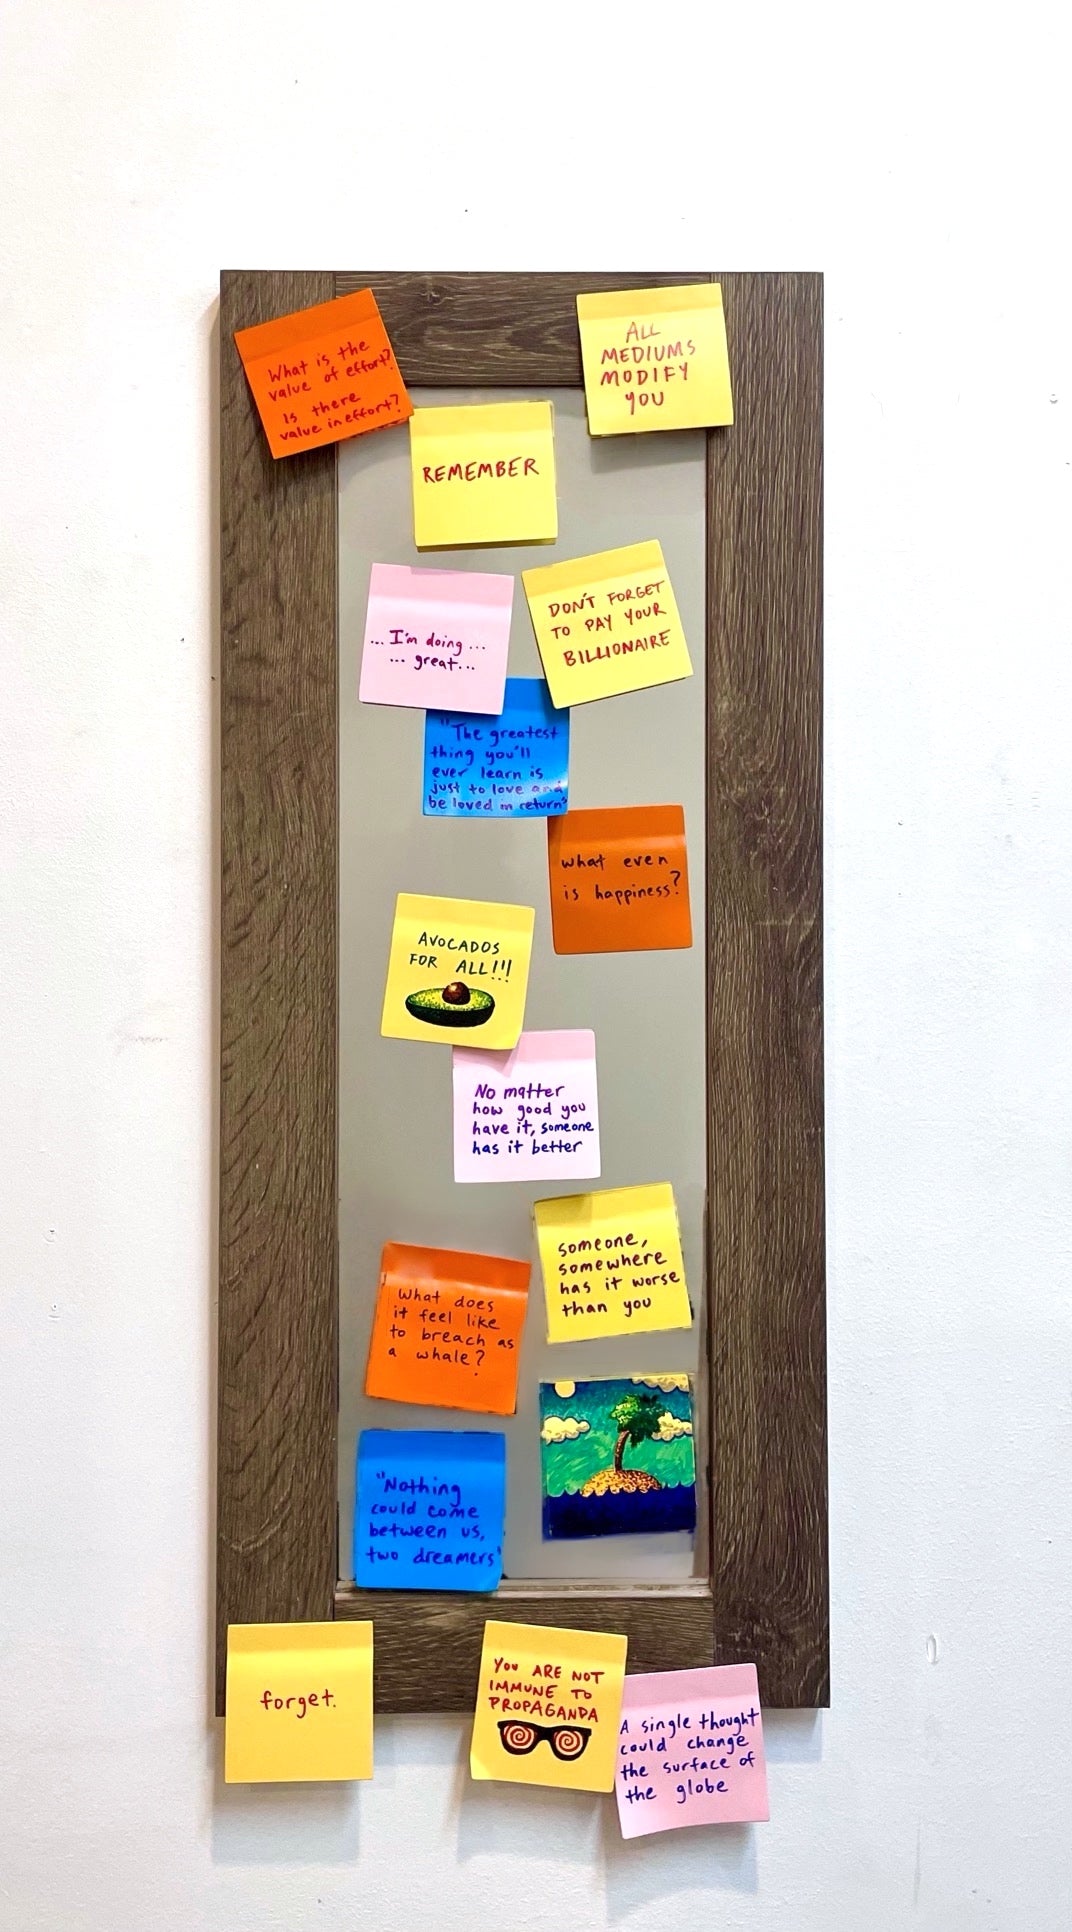 What is the
value of effort?
Is there
value in effort?
ALL
MEDIUMS
MODIFY
YOU
REMEMBER
... I'm doing ...
... great...
DON'T FORGET
TO PAY YOUR
BILLIONAIRE
"The greatest
thing you'll
ever learn is
just to love and
be loved in return"
what even
is happiness?
AVOCADOS
FOR ALL!!!
No matter
how good you
have it, someone
has it better
someone,
somewhere
has it worse
than you
What does
it feel like
to breach as
a whale?
"Nothing
could come
between us,
two dreamers"
forget.
YOU ARE NOT
IMMUNE TO
PROPAGANDA
A single thought
could change
the surface of
the globe